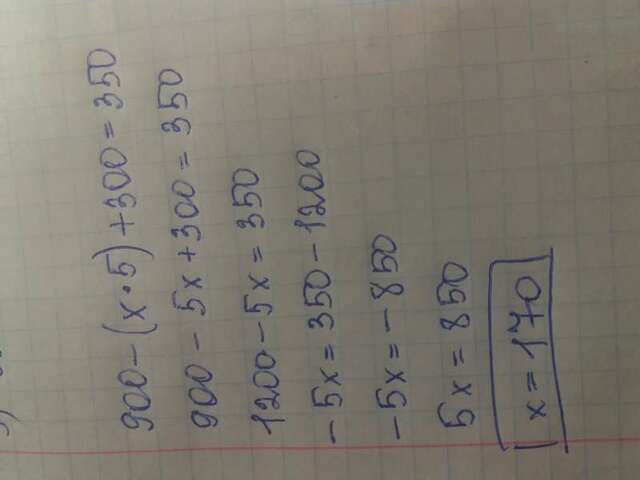 900-(x·5)+300=350
900-5x+300=350
1200-5x=350
-5x=350-1200
-5x=-850
5x=850
x=170